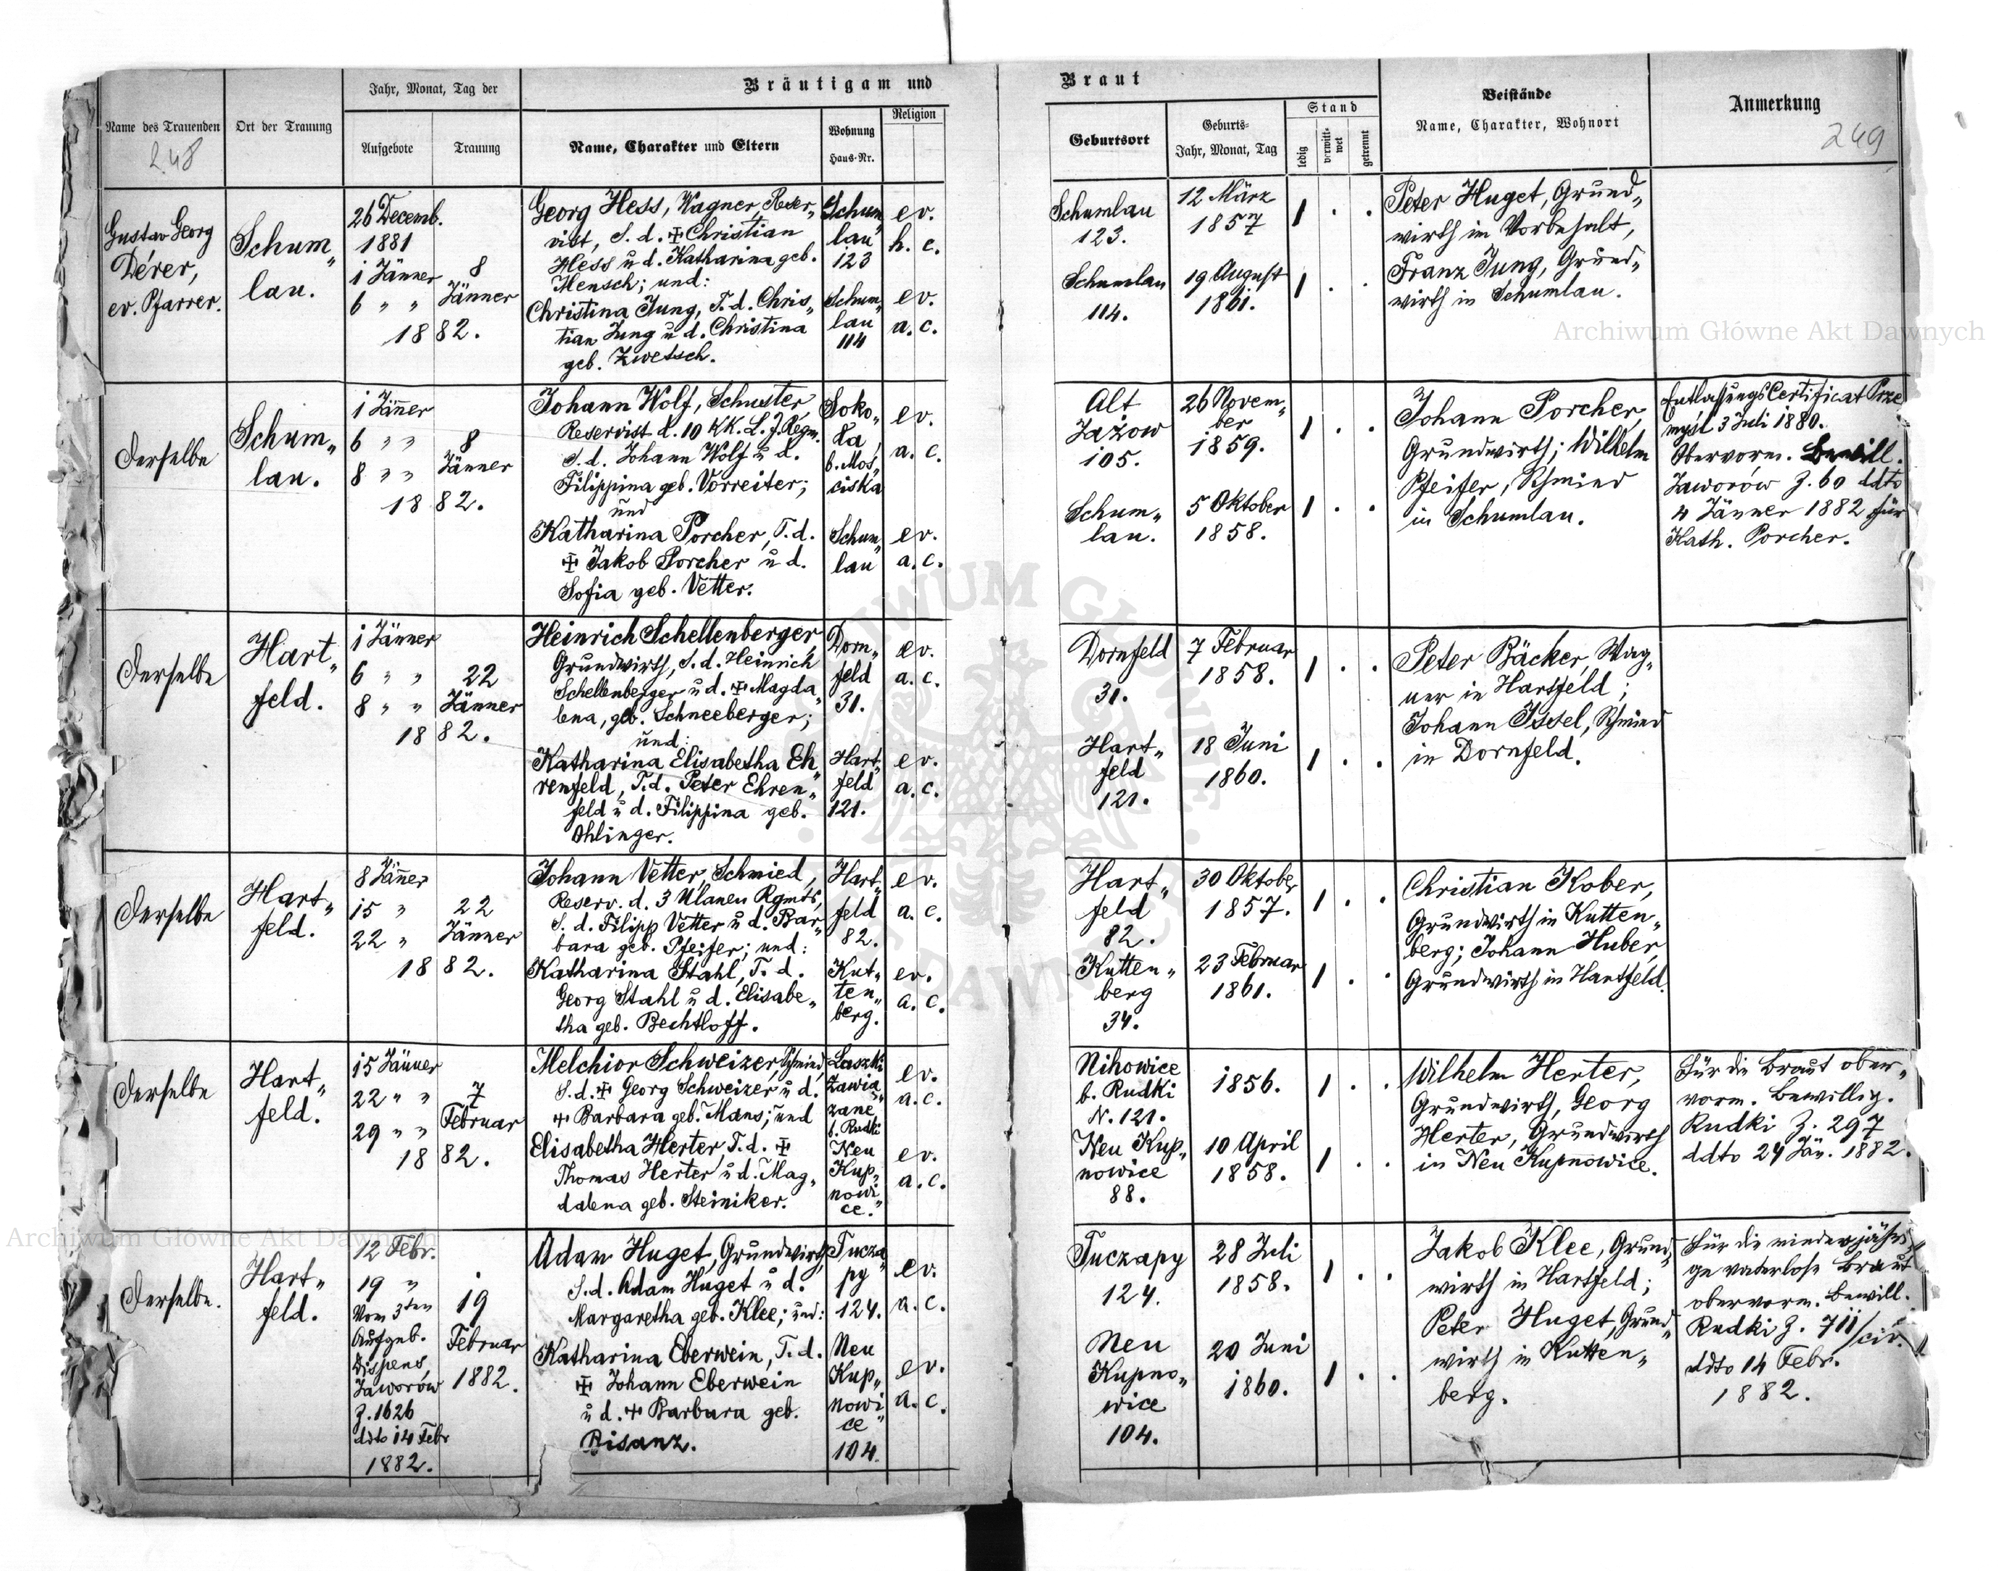 Bräutigam und
Braut
Name des Trauenden
248
Ort der Trauung
Jahr, Monat, Tag der
Aufgebote
Trauung
Name, Charakter und Eltern
Wohnung
Haus-Nr.
Religion
Geburtsort
Geburts-
Jahr, Monat, Tag
Stand
ledig
verwitt-
wet
getrennt
Beistände
Name, Charakter, Wohnort
Anmerkung
249
Gustav Georg
Dérer,
ev. Pfarrer.
Schum„
lau.
26 Decemb.
1881
1 Jänner
6 „ „
8
Jänner
1882.
Georg Hess, Wagner, Reser„
vist, S. d. ☩ Christian
Hess u. d. Katharina geb.
Mensch; und:
Christina Jung, T. d. Chris„
tian Jung u. d. Christina
geb. Zwetsch.
Schum„
lau
123
Schum„
lau
114
ev.
h. c.
ev.
a. c.
Schumlau
123.
Schumlau
114.
12 März
1857
19 August
1861.
1 . .
1 . .
Peter Huget, Grund„
wirth im Vorbehalt,
Franz Jung, Grund„
wirth in Schumlau.
Derselbe
Schum„
lau.
1 Jänner
6 „ „
8 „ „
8
Jänner
1882.
Johann Wolf, Schuster,
Reservist d. 10 KK. L. J. Regm.
S. d. Johann Wolf u. d.
Filippina geb. Vorreiter;
und
Katharina Porcher, T. d.
☩ Jakob Porcher u. d.
Sofia geb. Vetter.
Soko„
la
b. Mos„
ciska
Schum„
lau
ev.
a. c.
ev.
a. c.
Alt
Jażow
105.
Schum„
lau.
26 Novem„
ber
1859.
5 Oktober
1858.
1 . .
1 . .
Johann Porcher,
Grundwirth; Wilhelm
Pfeifer, Schmied
in Schumlau.
Entlassungs Certificat Prze
myśl 3 Juli 1880.
Obervorm. Bewill.
Jaworów Z. 60 ddto
4 Jänner 1882 für
Kath. Porcher.
Derselbe
Hart„
feld.
1 Jänner
6 „ „
8 „ „
22
Jänner
1882.
Heinrich Schellenberger,
Grundwirth, S. d. Heinrich
Schellenberger u. d. ☩ Magda„
lena, geb. Schneeberger;
und:
Katharina Elisabetha Eh„
renfeld, T. d. Peter Ehren„
feld u. d. Filippina geb.
Ohlinger.
Dorn„
feld
31.
Hart„
feld
121.
ev.
a. c.
ev.
a. c.
Dornfeld
31.
Hart„
feld
121.
7 Februar
1858.
18 Juni
1860.
1 . .
1 . .
Peter Bäcker, Wag„
ner in Hartfeld;
Johann Issel, Schmied
in Dornfeld.
Derselbe
Hart„
feld.
8 Jänner
15 „
22 „
22
Jänner
1882.
Johann Vetter, Schmied,
Reserv. d. 3 Ulanen Rgmts,
S. d. Filipp Vetter u. d. Bar„
bara geb. Pfeifer; und:
Katharina Stahl, T. d.
Georg Stahl u. d. Elisabe„
tha geb. Bechtloff.
Hart„
feld
82.
Kut„
ten„
berg.
ev.
a. c.
ev.
a. c.
Hart„
feld
82.
Kutten„
berg
34.
30 Oktober
1857.
23 Februar
1861.
1 . .
1 . .
Christian Kober,
Grundwirth in Kutten„
berg; Johann Huber,
Grundwirth in Hartfeld.
Derselbe
Hart„
feld.
15 Jänner
22 „ „
29 „ „
7
Februar
1882.
Melchior Schweizer, Schmied,
S. d. ☩ Georg Schweizer u. d.
☩ Barbara geb. Mans; und
Elisabetha Herter, T. d. ☩
Thomas Herter u. d. Mag„
dalena geb. Steiniker.
Laszki
Zawia„
zane
b. Rudki
Neu
Kup„
nowi„
ce.
ev.
a. c.
ev.
a. c.
Nihowice
b. Rudki
N. 121.
Neu Kup„
nowice
88.
1856.
10 April
1858.
1 . .
1 . .
Wilhelm Herter,
Grundwirth, Georg
Herter, Grundwirth
in Neu Kupnowice.
Für die Braut ober„
vorm. Bewillig.
Rudki Z. 297
ddto 24 Jän. 1882.
Derselbe.
Hart„
feld.
12 Febr.
19 „
Vom 3ten
Aufgeb.
Dispens
Jaworów
Z. 1626
ddto 14 Febr
1882.
19
Februar
1882.
Adam Huget, Grundwirth,
S. d. Adam Huget u. d.
Margaretha geb. Klee; und:
Katharina Eberwein, T. d.
☩ Johann Eberwein
u. d. ☩ Barbara geb.
Bisanz.
Tucza„
py
124.
Neu
Kup„
nowi„
ce
104.
ev.
a. c.
ev.
a. c.
Tuczapy
124.
Neu
Kupno„
wice
104.
28 Juli
1858.
20 Juni
1860.
1 . .
1 . .
Jakob Klee, Grund„
wirth in Hartfeld;
Peter Huget, Grund„
wirth in Kutten„
berg.
Für die minderjähri„
ge vaterlose Braut
obervorm. Bewill.
Rudki Z. 711/civ.
ddto 14 Febr.
1882.
Archiwum Główne Akt Dawnych
Archiwum Główne Akt Dawnych
ARCHIWUM GŁÓWNE AKT DAWNYCH